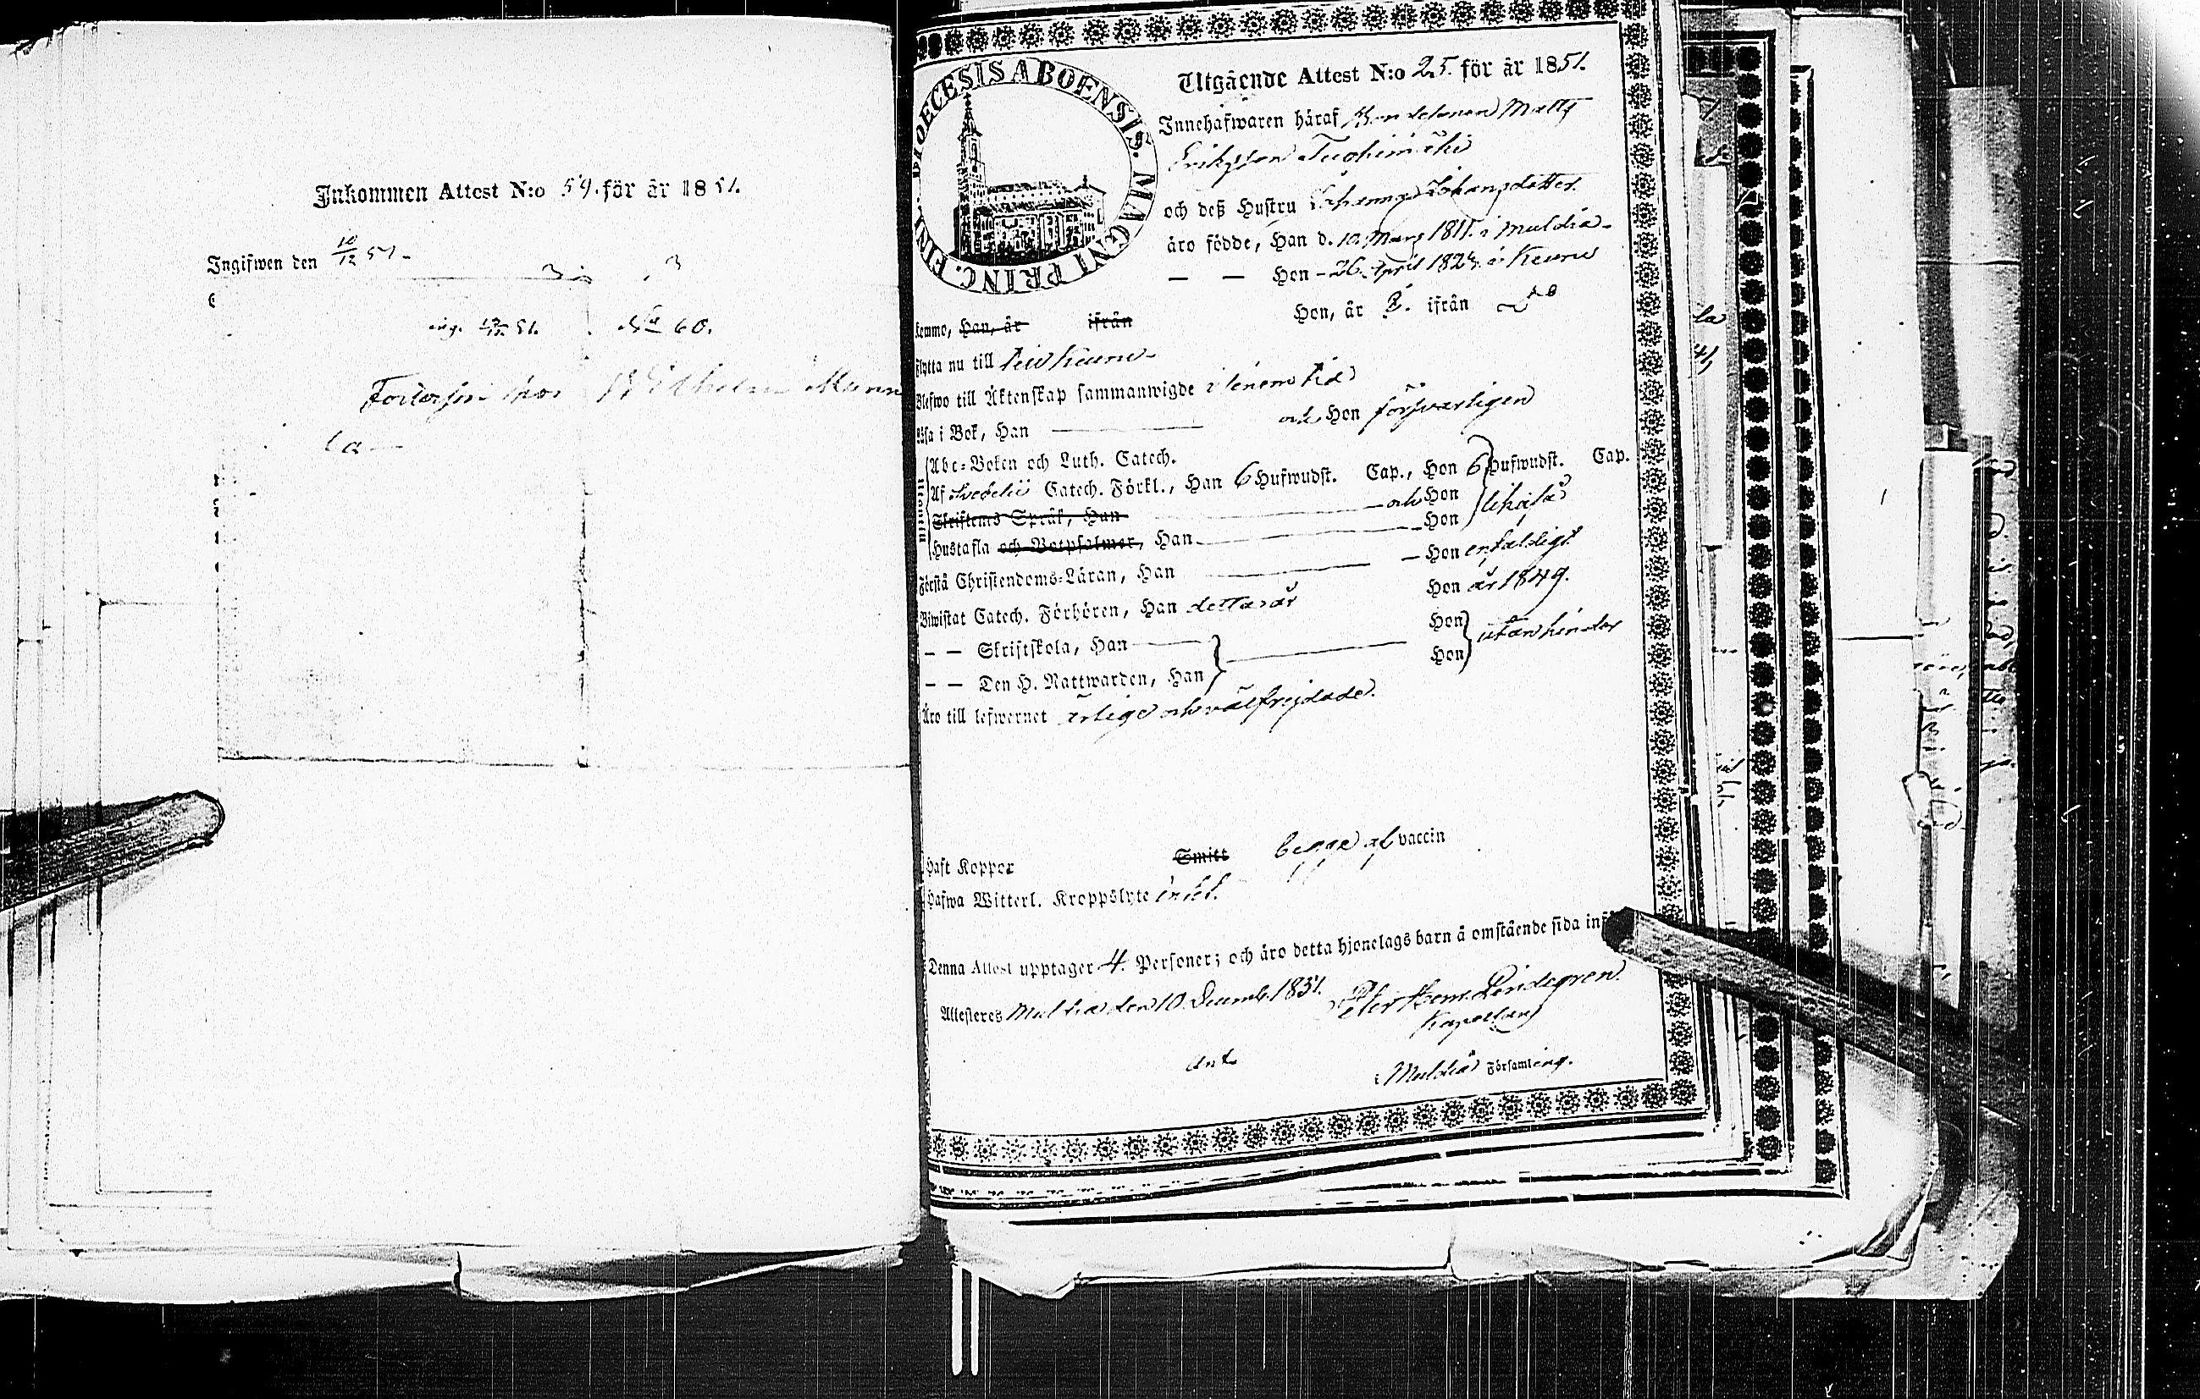 Inkommen Attest N:o 59. för år 1851.
Ingifwen den 10/12 51.
ing. 51. No 60.
Wilhelm
la
DIOECESIS ABOENSIS. MAGNI PRINC. FINL.
Utgående Attest N:o 25. för år 1851.
Innehafwaren häraf Matts
Eriksson
och deß Hustru Johansdotter
äro födde, Han d. 10. Mars 1811. i Muldia
— — Hon - 26. April 1824. i Keuru
komne, Han, är ifrån Hon, är ifrån
flytta nu till Keuru
Blefwo till Äktenskap sammanwigde i senem tid
Läsa i Bok, Han och Hon förswarligen
Abc-Boken och Luth. Catech.
Af Svebelii Catech. Förkl., Han 6 Hufwudst. Cap., Hon 6 Hufwudst. Cap.
Skriftens Språk, Han och Hon likaså
Hustafla och Botpsalmer, Han Hon
Förstå Christendoms-Läran, Han Hon enfaldigt
Biwistat Catech. Förhören, Han detta år Hon år 1849.
— — Skriftskola, Han Hon utan hinder
— — Den H. Nattwarden, Han Hon
Äro till lefwernet ärlige och välfrejdade.
Haft Koppor Smitt begge af vaccin
Hafwa Witterl. Kroppslyte intet.
Denna Attest upptager 4. Personer; och äro detta hjonelags barn å omstående sida inf
Attesteres Muldia den 10. Decemb. 1851. Peter Herm. Lindegren.
Kapellan
i Muldia Församling.